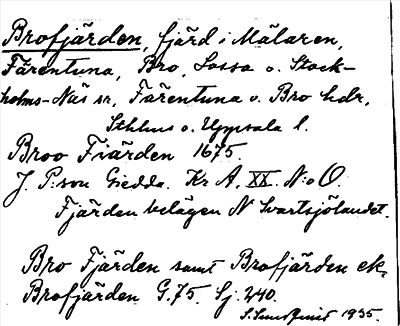 Brofjärden, fjärd i Mälaren,
Färentuna, Bro, Lossa o. Stock-
holms-Näs sn, Färentuna o. Bro hdr,
Sthlms o. Uppsala l.
Broo Fiärden 1675.
J. P:son Giedda. Kr A. XX. N:o O.
Fjärden belägen N Svartsjölandet.
Bro Fjärden samt Brofjärden ek.
Brofjärden G.75. Sj. 240.
1935.